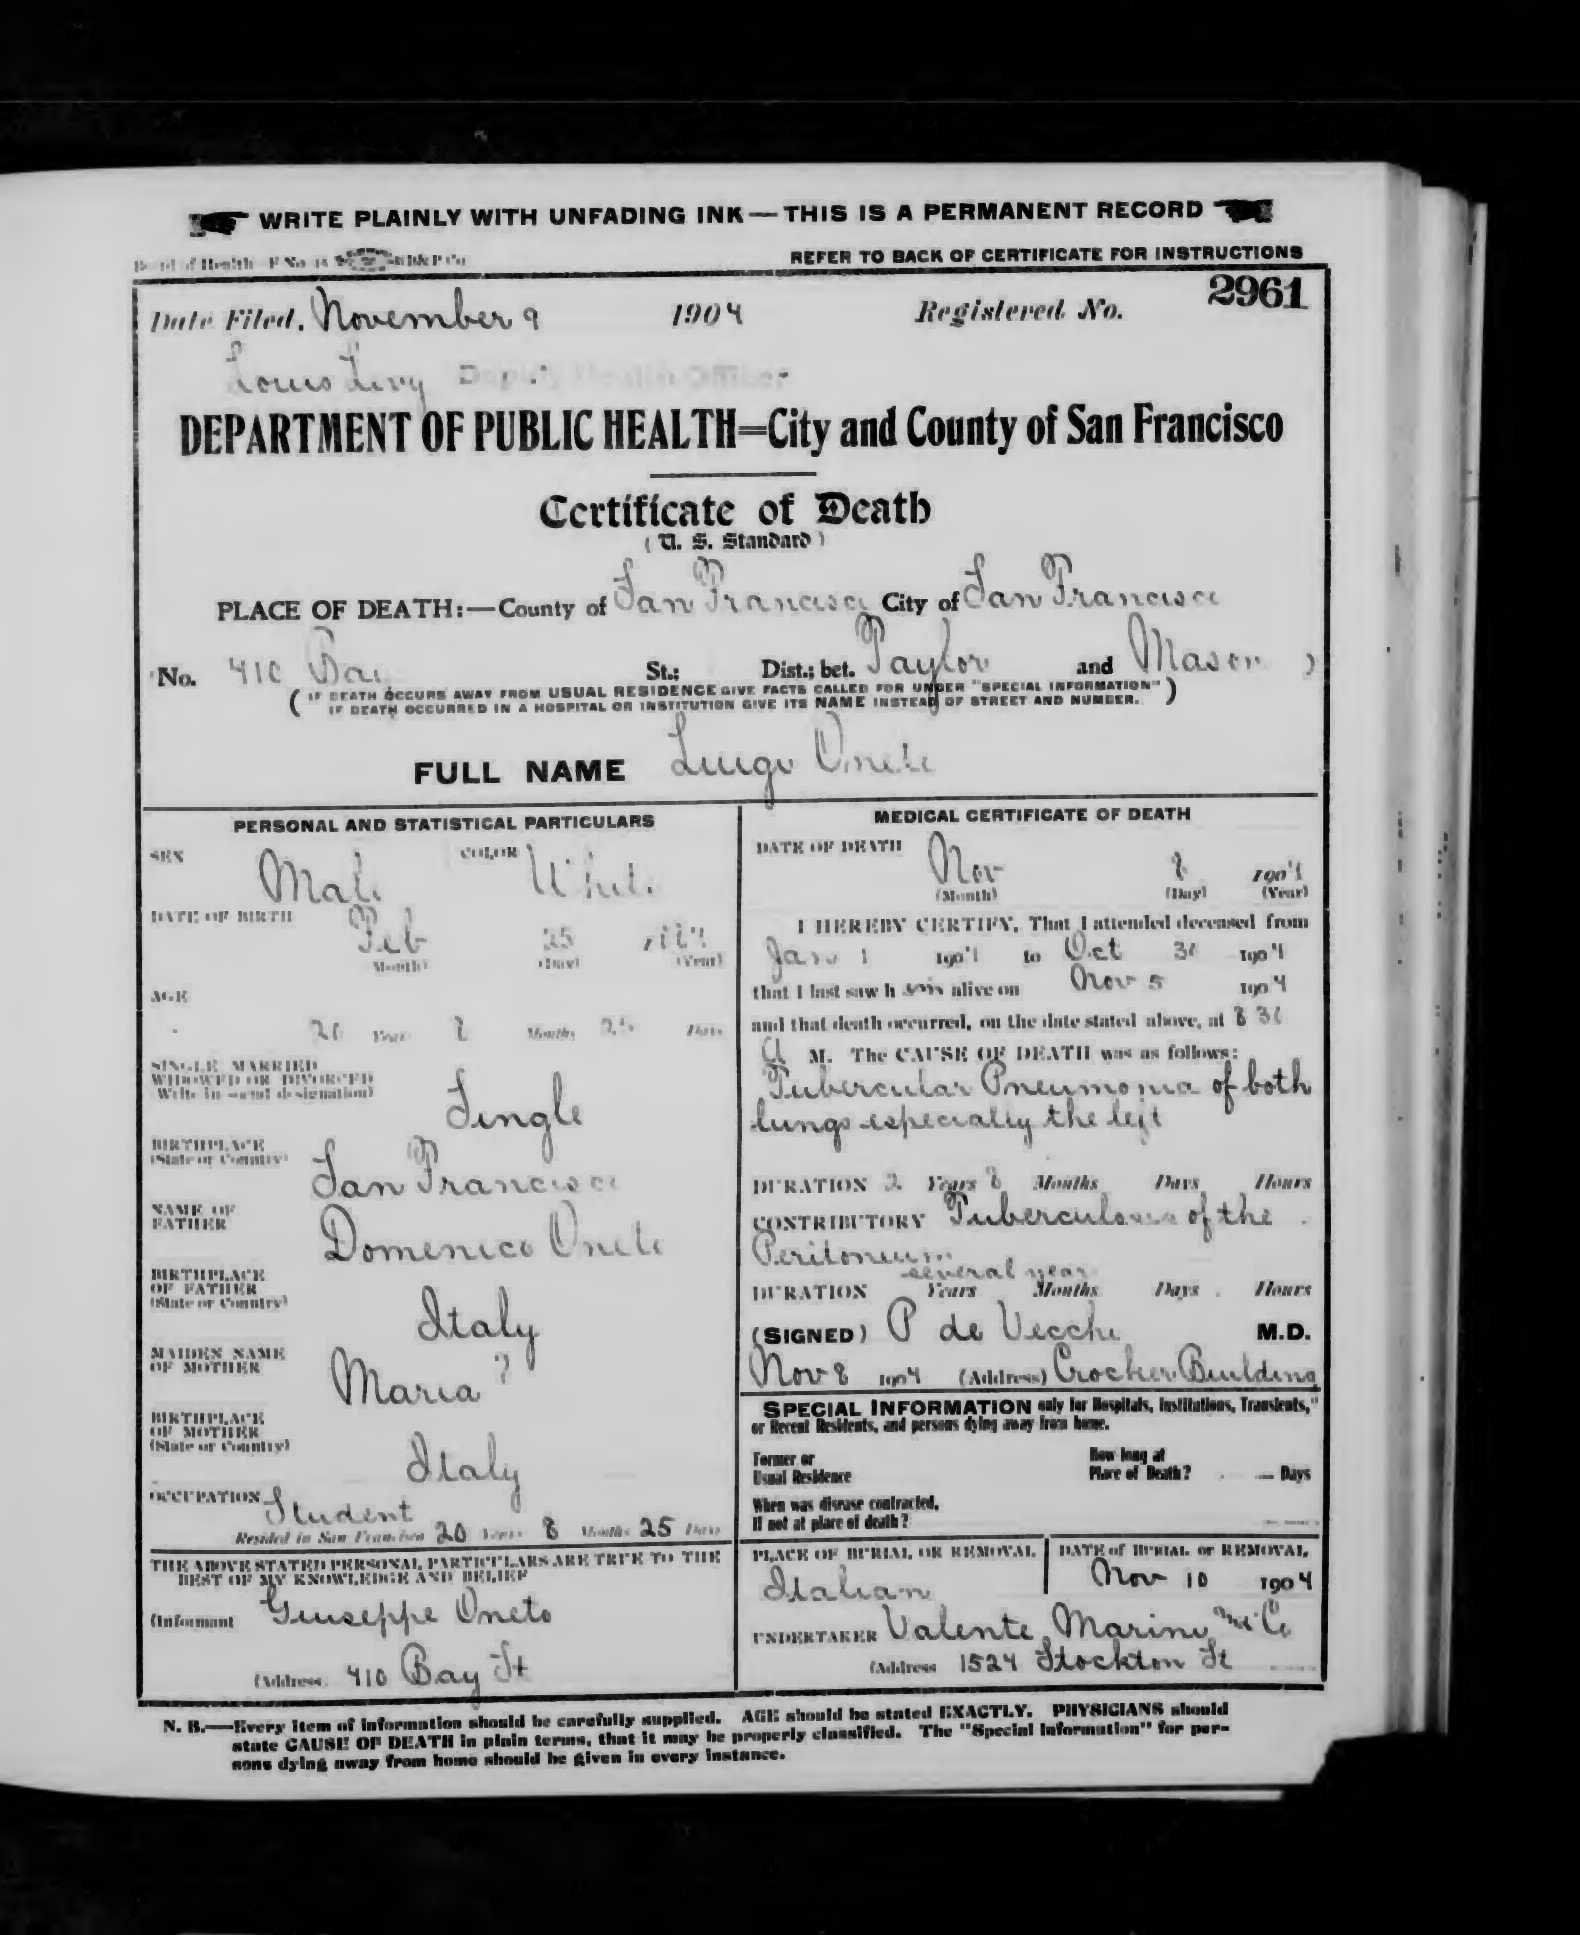 WRITE PLAINLY WITH UNFADING INK — THIS IS A PERMANENT RECORD
Board of Health F No. REFER TO BACK OF CERTIFICATE FOR INSTRUCTIONS
Date Filed, November 9 1904 Registered No. 2961
Louis Levy Deputy Health Officer
DEPARTMENT OF PUBLIC HEALTH=City and County of San Francisco
Certificate of Death
(U. S. Standard)
PLACE OF DEATH:—County of San Francisco City of San Francisco
No. 410 Bay St.; Dist.; bet. Taylor and Mason )
( IF DEATH OCCURS AWAY FROM USUAL RESIDENCE GIVE FACTS CALLED FOR UNDER "SPECIAL INFORMATION" )
IF DEATH OCCURRED IN A HOSPITAL OR INSTITUTION GIVE ITS NAME INSTEAD OF STREET AND NUMBER.
FULL NAME Luigi Oneto
PERSONAL AND STATISTICAL PARTICULARS
SEX Male COLOR White
DATE OF BIRTH Feb
(Month) (Day) (Year)
AGE
20 Years 8 Months 25 Days
SINGLE MARRIED
WIDOWED OR DIVORCED
(Write in social designation) Single
BIRTHPLACE
(State or Country) San Francisco
NAME OF
FATHER Domenico Oneto
BIRTHPLACE
OF FATHER
(State or Country) Italy
MAIDEN NAME
OF MOTHER Maria ?
BIRTHPLACE
OF MOTHER
(State or Country) Italy
OCCUPATION Student
Resided in San Francisco 20 Years 8 Months 25 Days
THE ABOVE STATED PERSONAL PARTICULARS ARE TRUE TO THE
BEST OF MY KNOWLEDGE AND BELIEF
(Informant Giuseppe Oneto
(Address 410 Bay St
MEDICAL CERTIFICATE OF DEATH
DATE OF DEATH Nov 8 1904
(Month) (Day) (Year)
I HEREBY CERTIFY, That I attended deceased from
Jan 1 1904 to Oct 30 1904
that I last saw h im alive on Nov 5 1904
and that death occurred, on the date stated above, at 8 30
A M. The CAUSE OF DEATH was as follows:
Tubercular Pneumonia of both
lungs especially the left
DURATION 2 Years 8 Months Days Hours
CONTRIBUTORY Tuberculosis of the
Peritoneum
several year
DURATION Years Months Days Hours
(SIGNED) P de Vecchi M.D.
Nov 8 1904 (Address) Crocker Building
SPECIAL INFORMATION only for Hospitals, Institutions, Transients,
or Recent Residents, and persons dying away from home.
Former or
Usual Residence
How long at
Place of Death? — Days
When was disease contracted,
If not at place of death?
PLACE OF BURIAL OR REMOVAL DATE of BURIAL or REMOVAL
Italian Nov 10 1904
UNDERTAKER Valente Marini & Co
(Address 1524 Stockton St
N. B.—Every item of information should be carefully supplied. AGE should be stated EXACTLY. PHYSICIANS should
state CAUSE OF DEATH in plain terms, that it may be properly classified. The "Special Information" for per-
sons dying away from home should be given in every instance.